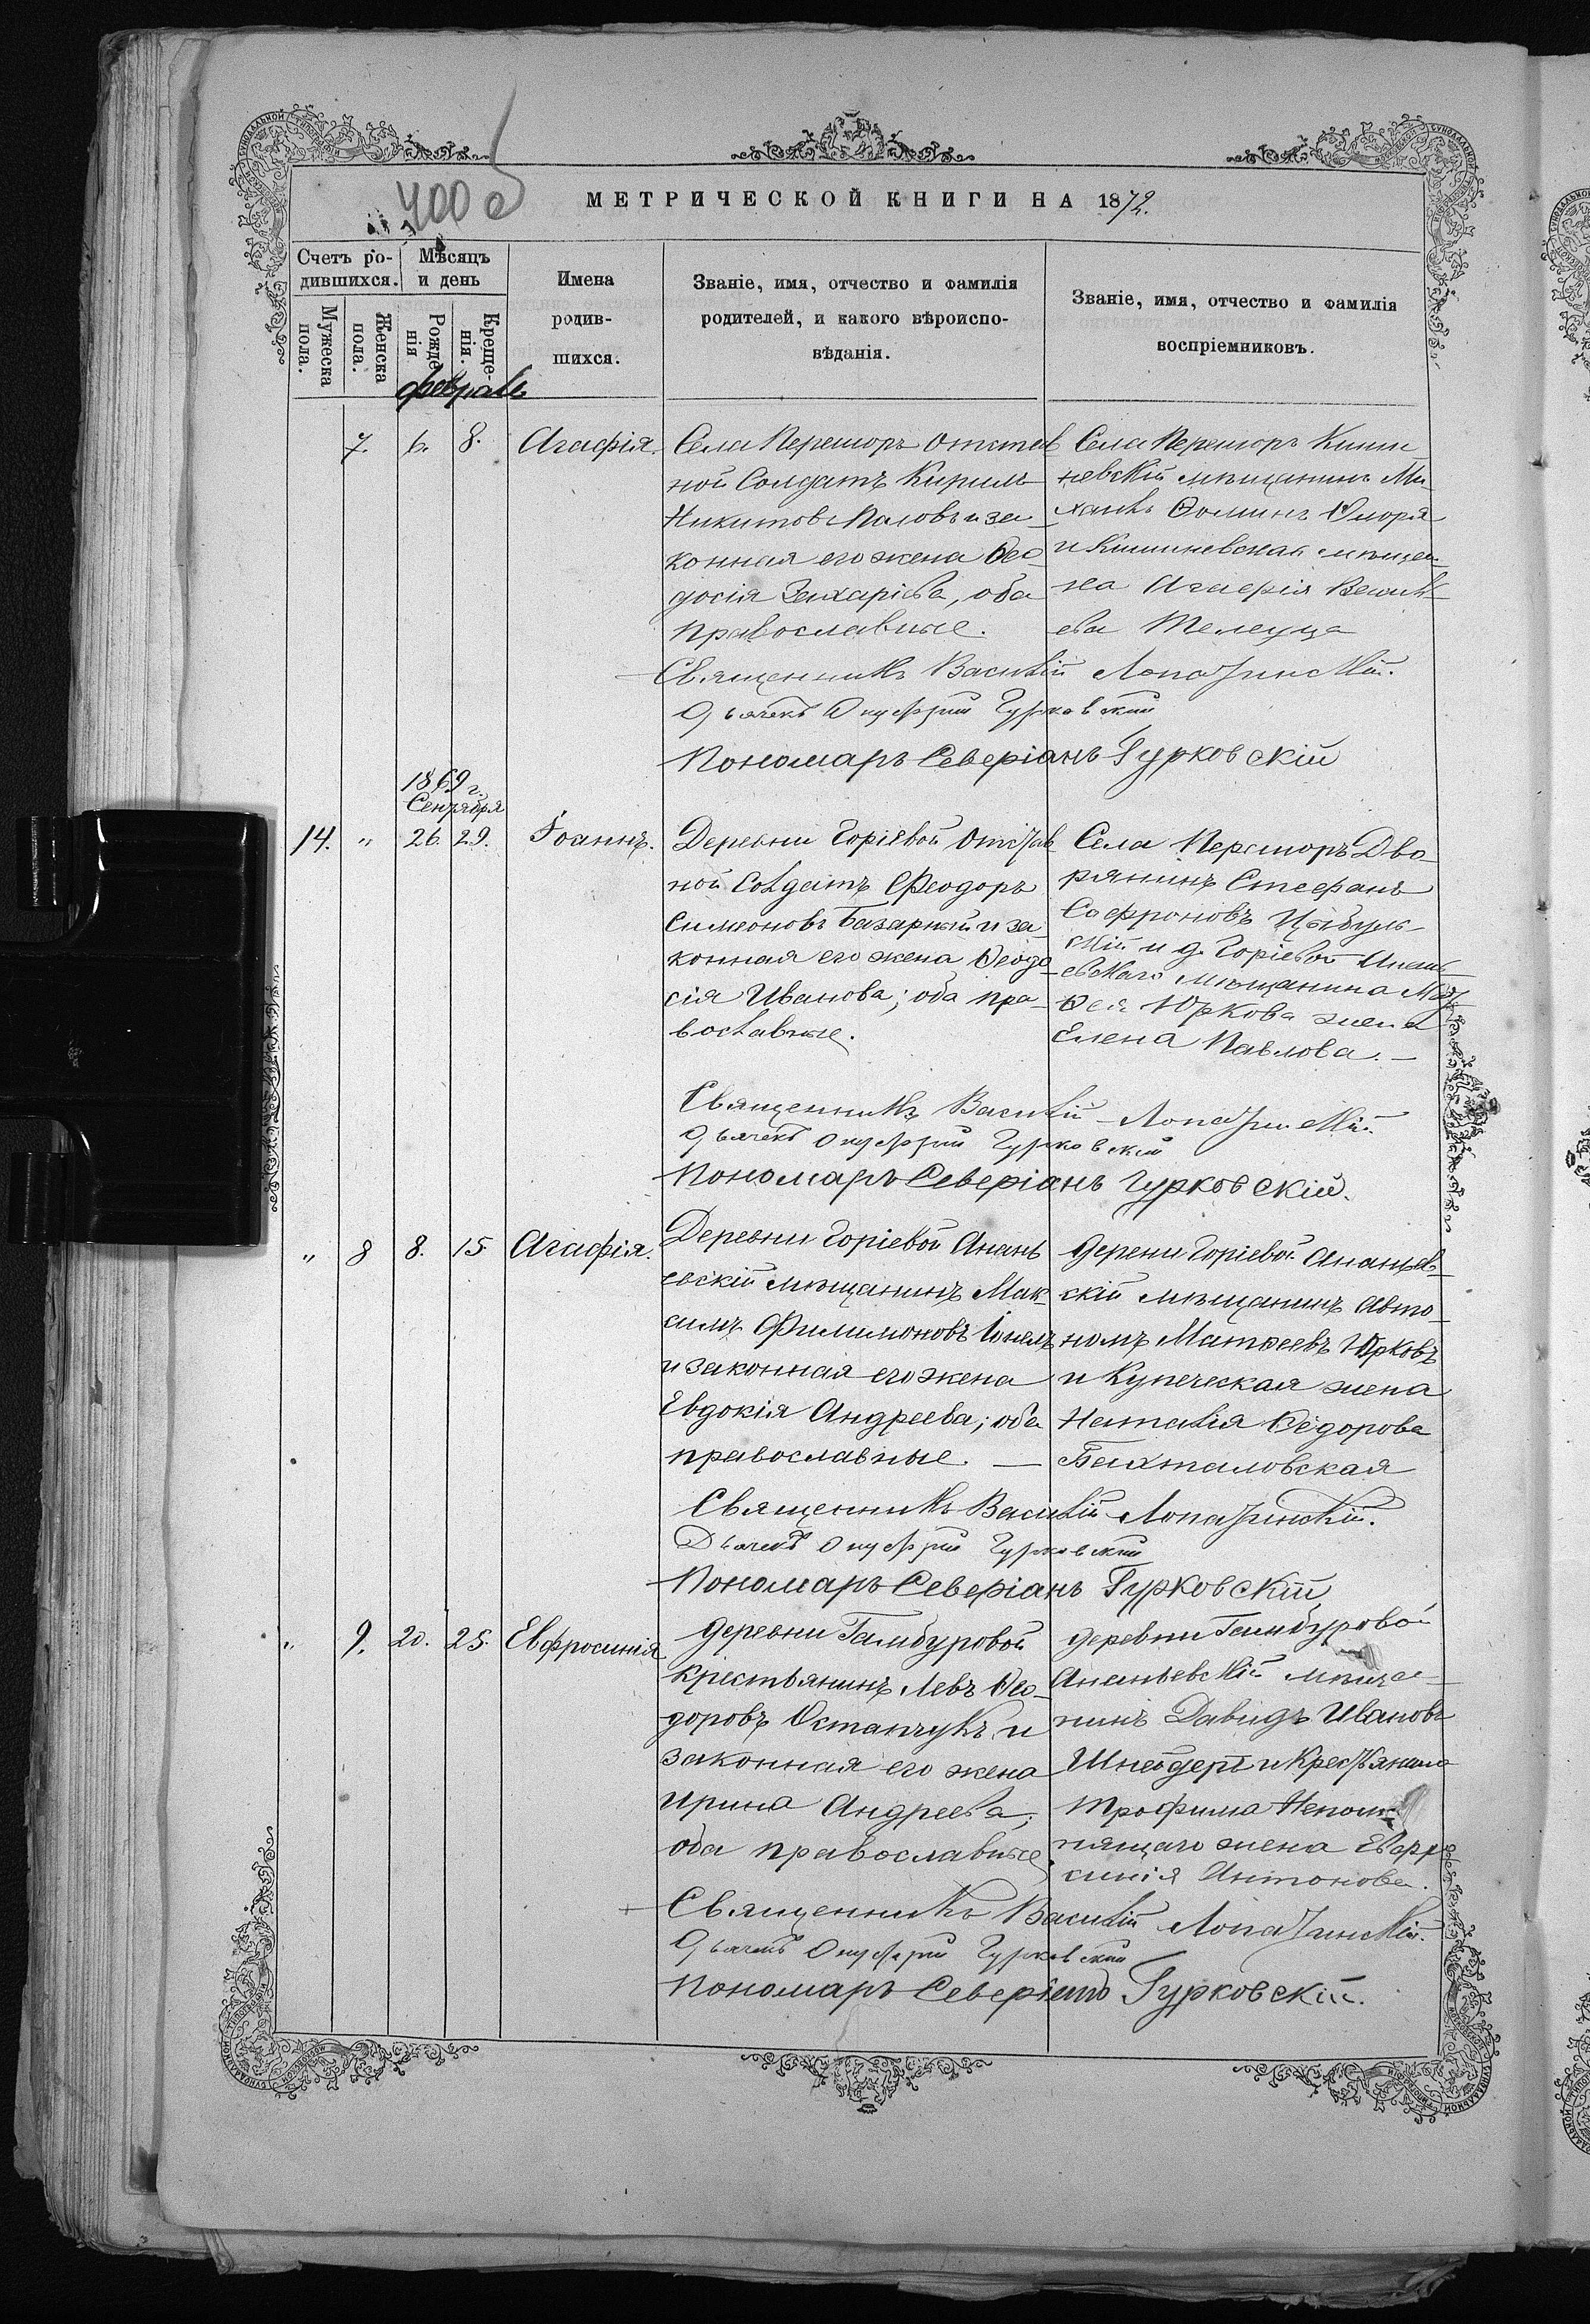 400 об
МЕТРИЧЕСКОЙ КНИГИ НА 1872.
Счетъ ро-
дившихся.
Мужеска пола.
Женска пола.
Мѣсяцъ
и день
Рожде нія
Креще- нія.
Имена
родив-
шихся.
Званіе, имя, отчество и фамилія
родителей, и какого вѣроиспо-
вѣданія.
Званіе, имя, отчество и фамилія
воспріемниковъ.
февраль
7. 6. 8. Агафія.
Села Перешоръ Отстав
ной Солдатъ Кирилъ
Никитовъ Паловъ и за-
конная его жена Ѳео-
досія Захаріева, оба
православные.
Села Перешоръ Киши
невскій мѣщанинъ Ми-
хаилъ Ѳоминъ
и Кишиневская мѣщан-
ка Агафія Василь-
ева Телеуца
Священникъ Василій Лопатинскій.
Дьячекъ Онуфрій Гурковскій
Пономарь Северіанъ Гурковскій
1869 г.
Сентября
14. " 26. 29. Іоаннъ.
Деревни Горіевой Отстав
ной Солдатъ Феодоръ
Симеоновъ Базарный и за-
конная его жена Ѳеодо-
сія Иванова; оба пра-
вославные.
Села Перешоръ Дво-
рянинъ Стефанъ
Сафроновъ Цыбуль-
скій и д. Горіевой Анань-
евскаго мѣщанина Мат-
ѳея Юркова жена
Елена Павлова. —
Священникъ Василій Лопатинскій.
Дьячекъ Онуфрій Гурковскій
Пономарь Северіанъ Гурковскій.
" 8 8. 15. Агафія.
Деревни Горіевой Анань
евскій мѣщанинъ Мак-
симъ Филимоновъ
и законная его жена
Евдокія Андреева; оба
православные. —
Дерени Горіевой Ананьев-
скій мѣщанинъ Авто-
номъ Матѳеевъ Юрковъ
и Купеческая жена
Наталія Ѳедорова
Бахталовская
Священникъ Василій Лопатинскій.
Дьячекъ Онуфрій Гурковскій
Пономарь Северіанъ Гурковскій
" 9. 20. 25. Евфросинія
Деревни Гамбуровой
крестьянинъ Левъ Ѳео-
доровъ Остапчукъ и
законная его жена
Ирина Андреева;
оба православные
деревни Гамбуровой
Ананьевскій мѣща-
нинъ Давидъ Ивановъ
Шнейдеръ и Крестьянина
Трофима Непом-
нящаго жена Евфро
синія Антонова.
Священникъ Василій Лопатинскій.
Дьячекъ Онуфрій Гурковскій
Пономарь Северіанъ Гурковскій.